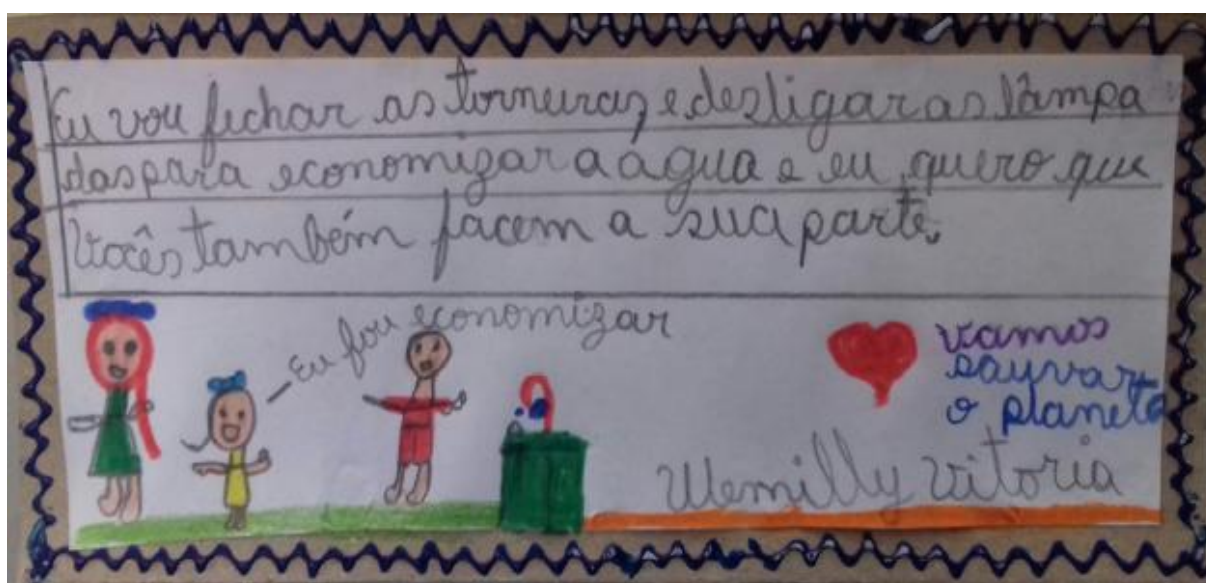 Eu vou fichar as torneiras e desligar as lâmpa
das para economizar a água e eu quero que
vocês também facem a sua parte.
Eu fou economizar
vamos
sauvar
o planeta
Wemilly vitoria